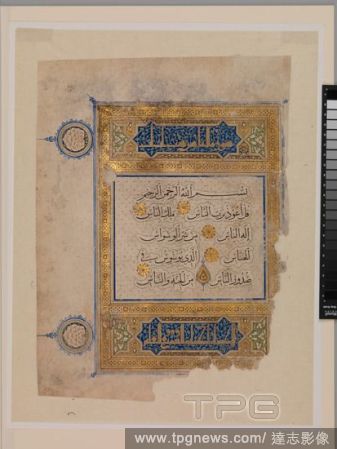 بسم الله الرحمن الرحيم
قل اعوذ برب الناس ملك الناس
اله الناس من شر الوسواس
الخناس الذي يوسوس في
صدور الناس من الجنة والناس
TPG
www.tpgnews.com/ 達志影像